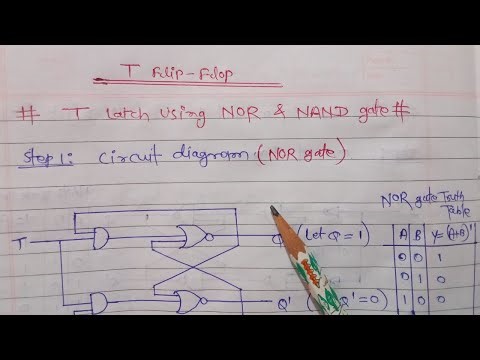 T Flip-Flop
# T Latch Using NOR & NAND gate #
Step 1: Circuit diagram (NOR gate)
NOR gate Truth
Table
T
Q (Let Q = 1)
Q' Q' = 0)
A B Y=(A+B)'
0 0 1
0 1 0
1 0 0